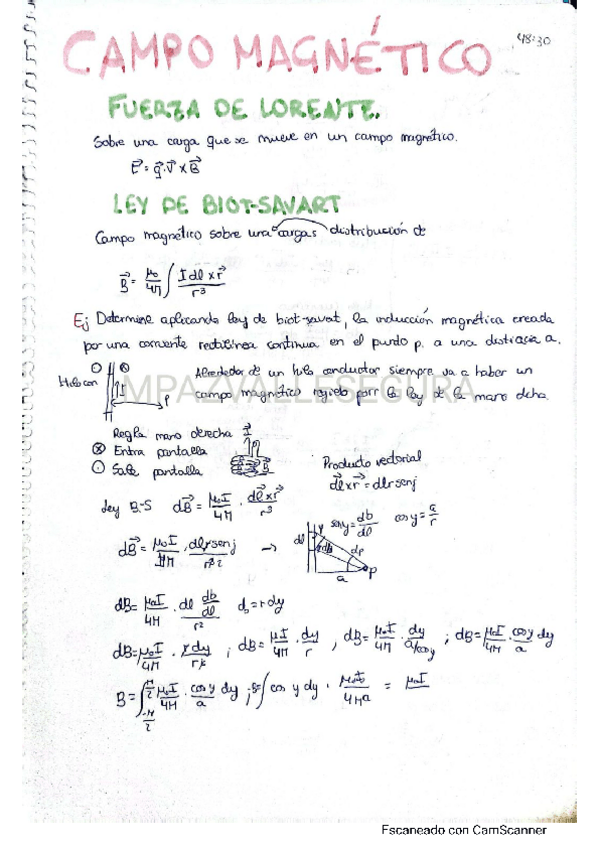 48:30
CAMPO MAGNÉTICO
FUERZA DE LORENTZ.
Sobre una carga que se mueve en un campo magnético.
F⃗ = q⃗·V⃗ x B⃗
LEY DE BIOT-SAVART
Campo magnético sobre una cargas distribución de
B⃗ = μ₀/4π ∫ I dl x r⃗ / r³
Ej Determine aplicando ley de biot-savat, la inducción magnética creada
por una corriente rectilínea continua en el punto p. a una distancia a.
Hilo con I P
Alrededor de un hilo conductor siempre va a haber un
campo magnético regido por la ley de la mano dcha.
MPAZVALLESEGURA
Regla mano derecha I⃗
⊗ Entra pantalla
⊙ Sale pantalla B⃗
Producto vectorial
dl⃗ x r⃗ = dl r sen y
Ley B-S dB⃗ = μ₀I/4π · dl⃗ x r⃗ / r³
sen y = db/dl cos y = a/r
dB⃗ = μ₀I/4π · dl r sen y / r³ ² →
dl y db dy a P
dB = μ₀I/4π · dl db/dl / r² d_b = r dy
dB = μ₀I/4π · r dy / r² ; dB = μ₀I/4π · dy/r , dB = μ₀I/4π · dy / a/cos y ; dB = μ₀I/4π · cos y dy / a
B = ∫ -π/2 π/2 μ₀I/4π · cos y / a dy ; B = ∫ cos y dy · μ₀I/4πa = μ₀I
Escaneado con CamScanner